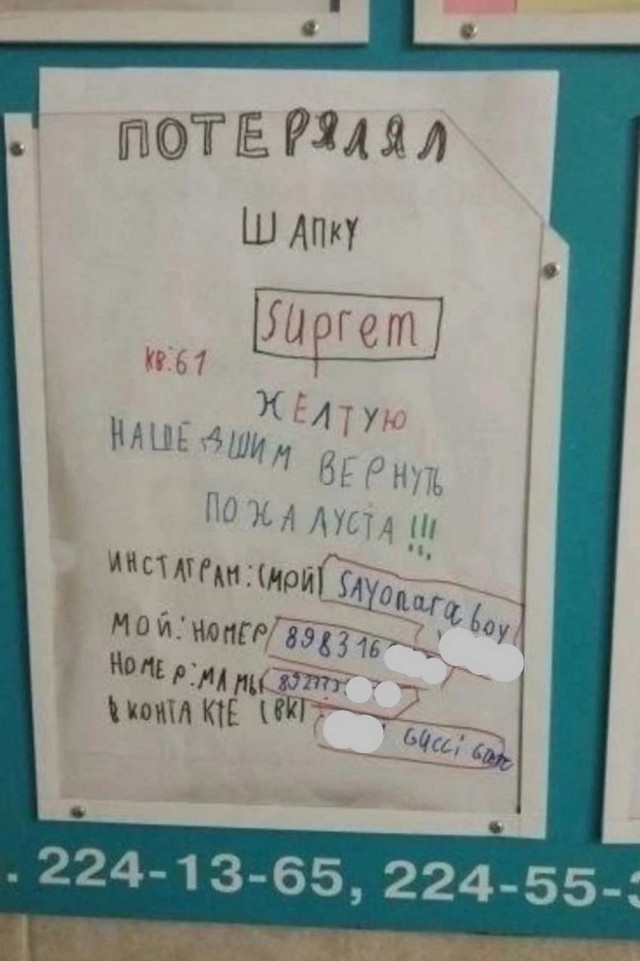 ПОТЕРЯЛЯЛ
ШАПКУ
Suprem
кв:61
ЖЕЛТУЮ
НАШЕДШИМ ВЕРНУТЬ
ПОЖАЛУСТА!!!
ИНСТАГРАМ:(МОЙ) SAYONARA boy
МОЙ:НОМЕР 8983 16
НОМЕР:МАМЫ
ВКОНТАКТЕ (ВК) GUCCI
. 224-13-65, 224-55-